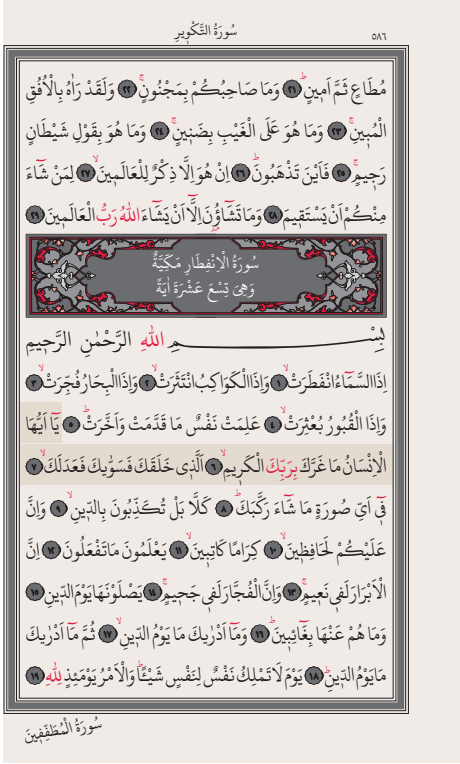 سُورَةُ التَّكْوِيرِ ٥٨٦
مُطَاعٍ ثَمَّ اَمِينٍۜ ﴿٢١﴾ وَمَا صَاحِبُكُمْ بِمَجْنُونٍۚ ﴿٢٢﴾ وَلَقَدْ رَاٰهُ بِالْاُفُقِ
الْمُبِينِۚ ﴿٢٣﴾ وَمَا هُوَ عَلَى الْغَيْبِ بِضَنِينٍۚ ﴿٢٤﴾ وَمَا هُوَ بِقَوْلِ شَيْطَانٍ
رَجِيمٍۚ ﴿٢٥﴾ فَاَيْنَ تَذْهَبُونَۜ ﴿٢٦﴾ اِنْ هُوَ اِلَّا ذِكْرٌ لِلْعَالَمِينَۙ ﴿٢٧﴾ لِمَنْ شَٓاءَ
مِنْكُمْ اَنْ يَسْتَقِيمَ ﴿٢٨﴾ وَمَا تَشَٓاؤُ۫نَ اِلَّٓا اَنْ يَشَٓاءَ اللّٰهُ رَبُّ الْعَالَمِينَ ﴿٢٩﴾
سُورَةُ الْاِنْفِطَارِ مَكِّيَّةٌ
وَهِيَ تِسْعَ عَشْرَةَ اٰيَةً
بِسْمِ اللّٰهِ الرَّحْمٰنِ الرَّحِيمِ
اِذَا السَّمَٓاءُ انْفَطَرَتْۙ ﴿١﴾ وَاِذَا الْكَوَاكِبُ انْتَثَرَتْۙ ﴿٢﴾ وَاِذَا الْبِحَارُ فُجِّرَتْۙ ﴿٣﴾
وَاِذَا الْقُبُورُ بُعْثِرَتْۙ ﴿٤﴾ عَلِمَتْ نَفْسٌ مَا قَدَّمَتْ وَاَخَّرَتْۜ ﴿٥﴾ يَٓا اَيُّهَا
الْاِنْسَانُ مَا غَرَّكَ بِرَبِّكَ الْكَرِيمِۙ ﴿٦﴾ اَلَّذِي خَلَقَكَ فَسَوّٰيكَ فَعَدَلَكَۙ ﴿٧﴾
فِٓي اَيِّ صُورَةٍ مَا شَٓاءَ رَكَّبَكَۜ ﴿٨﴾ كَلَّا بَلْ تُكَذِّبُونَ بِالدِّينِۙ ﴿٩﴾ وَاِنَّ
عَلَيْكُمْ لَحَافِظِينَۙ ﴿١٠﴾ كِرَامًا كَاتِبِينَۙ ﴿١١﴾ يَعْلَمُونَ مَا تَفْعَلُونَ ﴿١٢﴾ اِنَّ
الْاَبْرَارَ لَفِي نَعِيمٍۚ ﴿١٣﴾ وَاِنَّ الْفُجَّارَ لَفِي جَحِيمٍۚ ﴿١٤﴾ يَصْلَوْنَهَا يَوْمَ الدِّينِ ﴿١٥﴾
وَمَا هُمْ عَنْهَا بِغَٓائِبِينَۜ ﴿١٦﴾ وَمَٓا اَدْرٰيكَ مَا يَوْمُ الدِّينِۙ ﴿١٧﴾ ثُمَّ مَٓا اَدْرٰيكَ
مَا يَوْمُ الدِّينِۜ ﴿١٨﴾ يَوْمَ لَا تَمْلِكُ نَفْسٌ لِنَفْسٍ شَيْـًٔاۜ وَالْاَمْرُ يَوْمَئِذٍ لِلّٰهِ ﴿١٩﴾
سُورَةُ الْمُطَفِّفِينَ